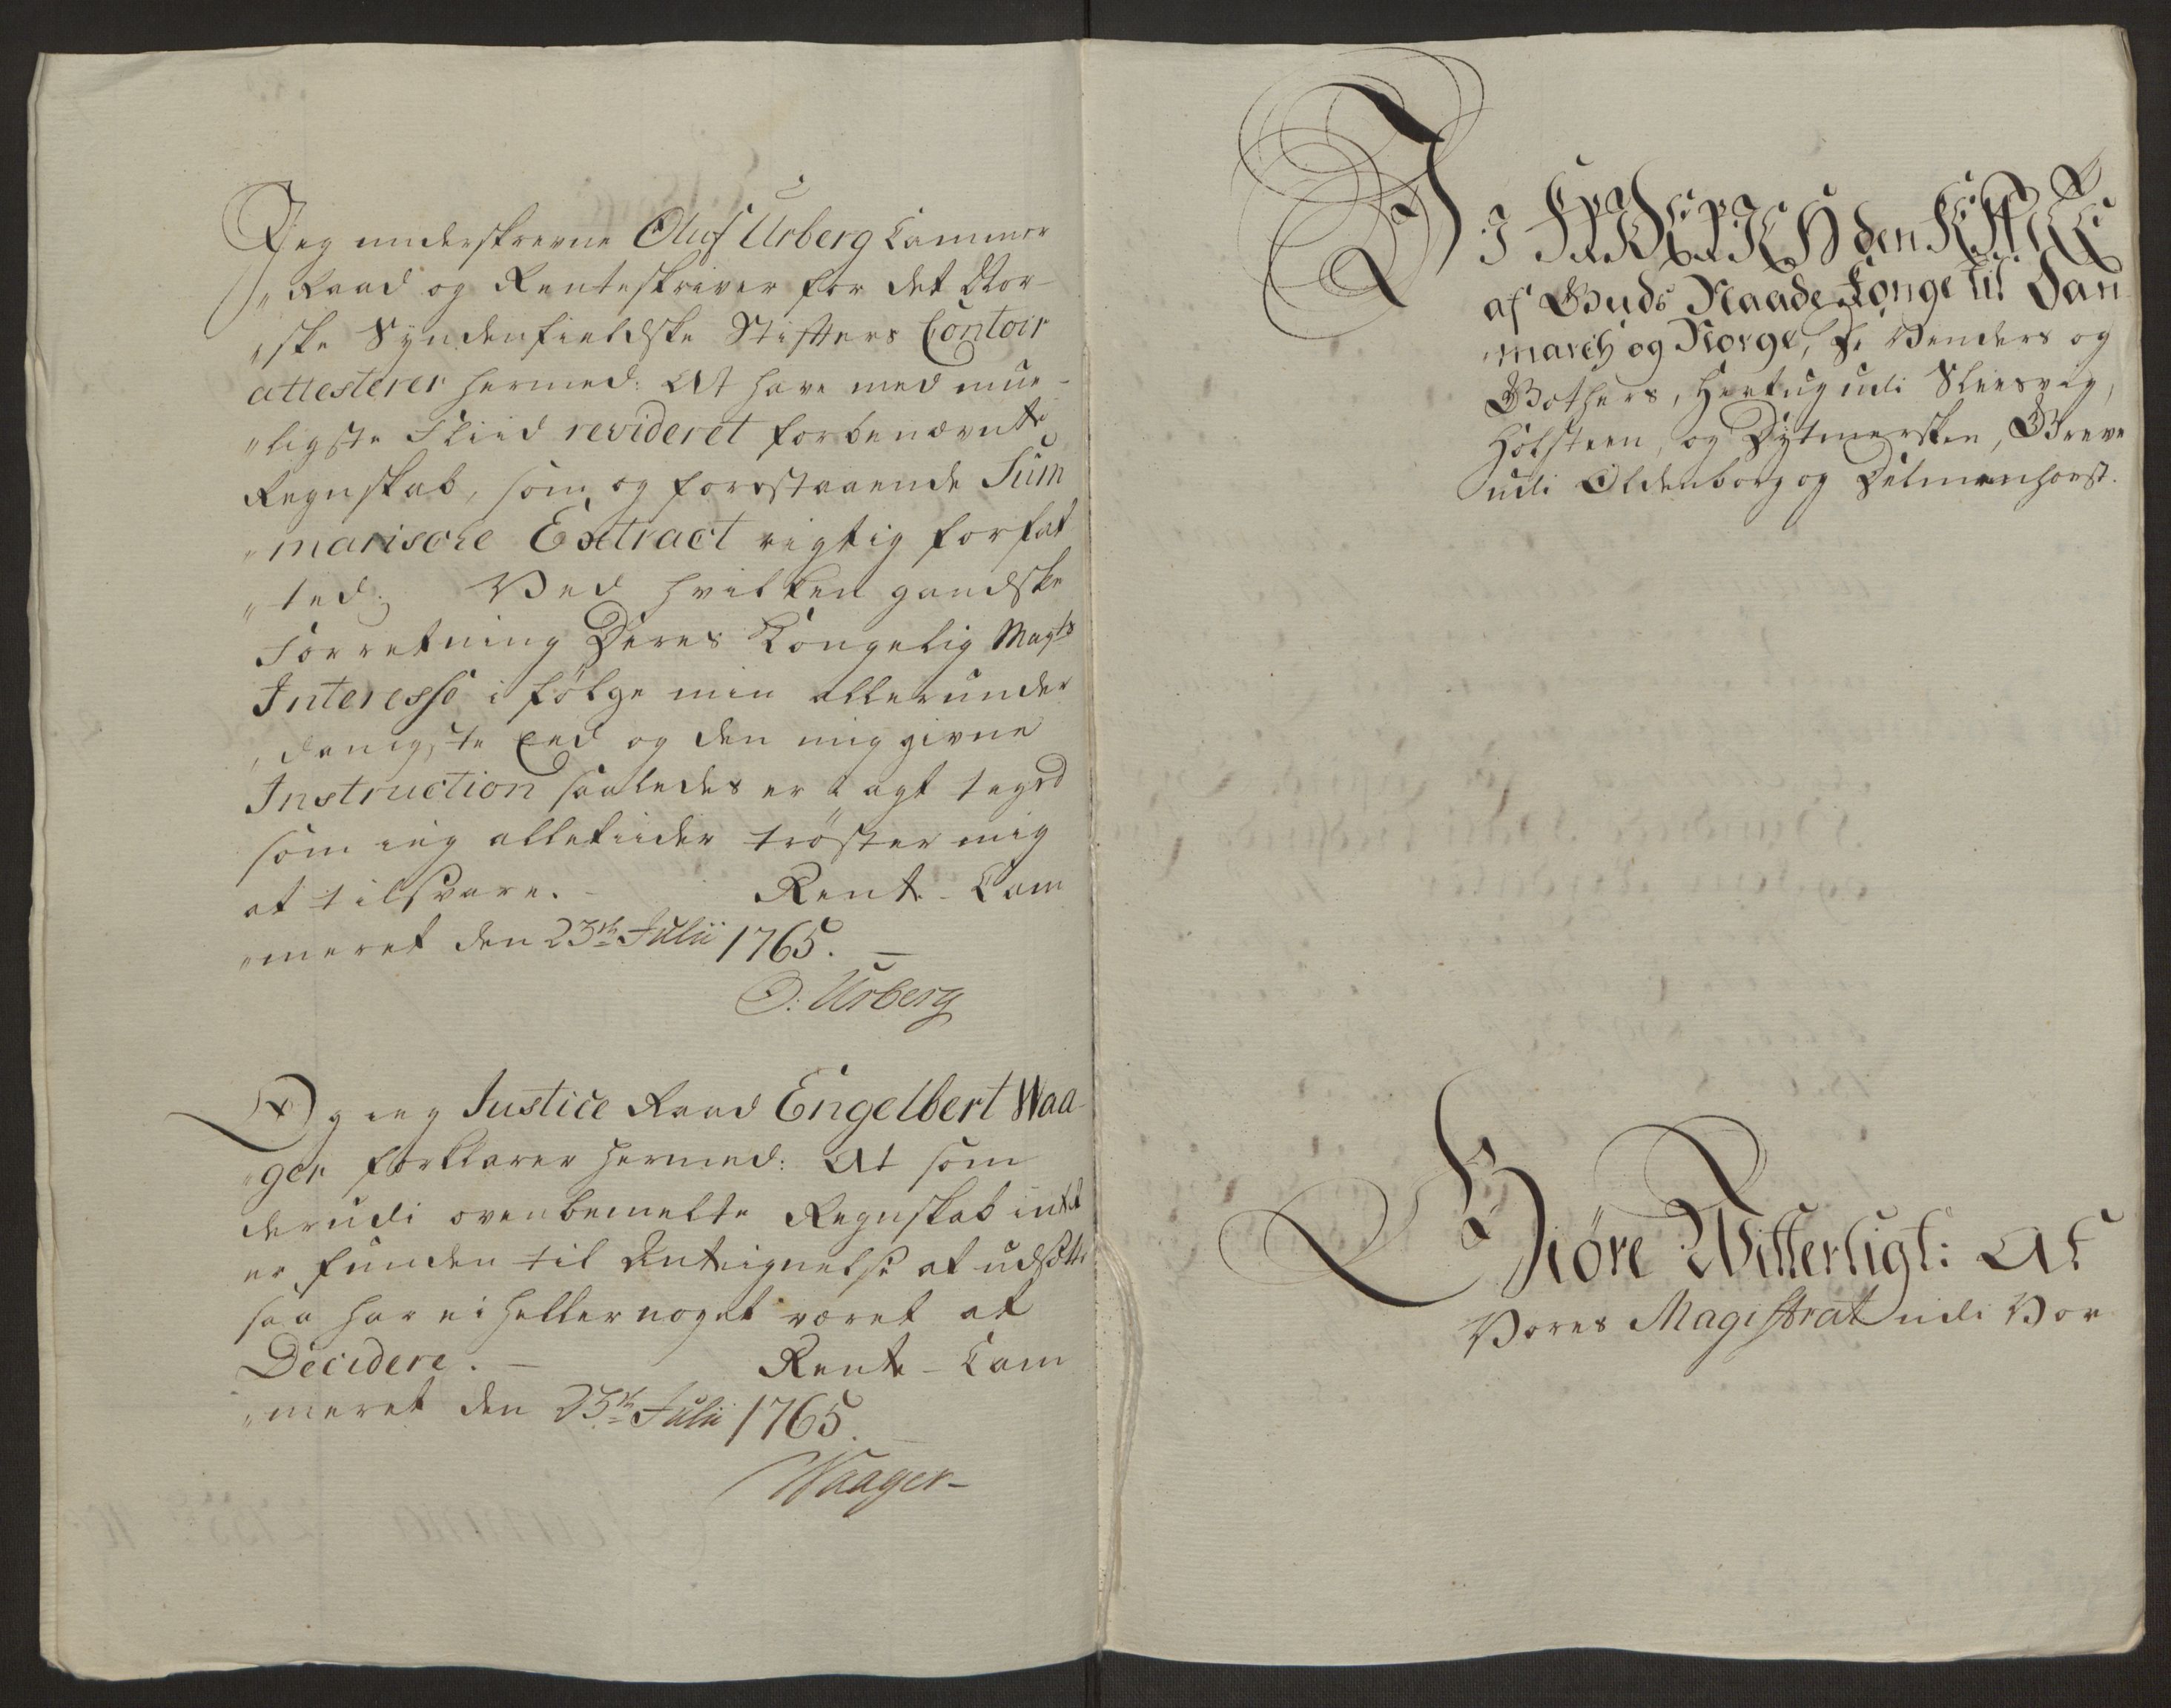 Jeg underskrevne Oluf Urberg Cammer
„Raad og Renteskriver for det Nor-
„ske Syndenfieldske Stifters Contoir
attesterer hermed: At have med mue-
„ligste Fliid revideret forbenævnte
Regnskab, som og forestaaende Sum
„marische Extract rigtig forfat
„ted; Ved hvilken gandske
Forretning Deres Kongelig Mayts
Interesse i følge min allerunder
„danigste Eed og den mig givne
Instruction saaledes er tagt i agt
som ieg alletiider trøster mig
at tilsvare. - Rente-Cam
„meret den 23de Julii 1765. -
O: Urberg
Og ieg Justice Raad Engelbert Waa-
„ger forklarer hermed: At som
derudi ovenbemelte Regnskab intet
er funden til Antegnelse at udsætte
saa har ei heller noget været at
Decidere. - Rente-Cam
„meret den 23de Julii 1765.
Waager-
Vi FRIDERICH den FEMTE
af Guds Naade Konge til Dan
„march og Norge, de Venders og
Gothers, Hertug udi Slesvig,
Holsteen, og Dytmersken, Greve
udi Oldenborg og Delmenhorst.
Giøre Witterligt: At
Vores Magistrat udi Vor